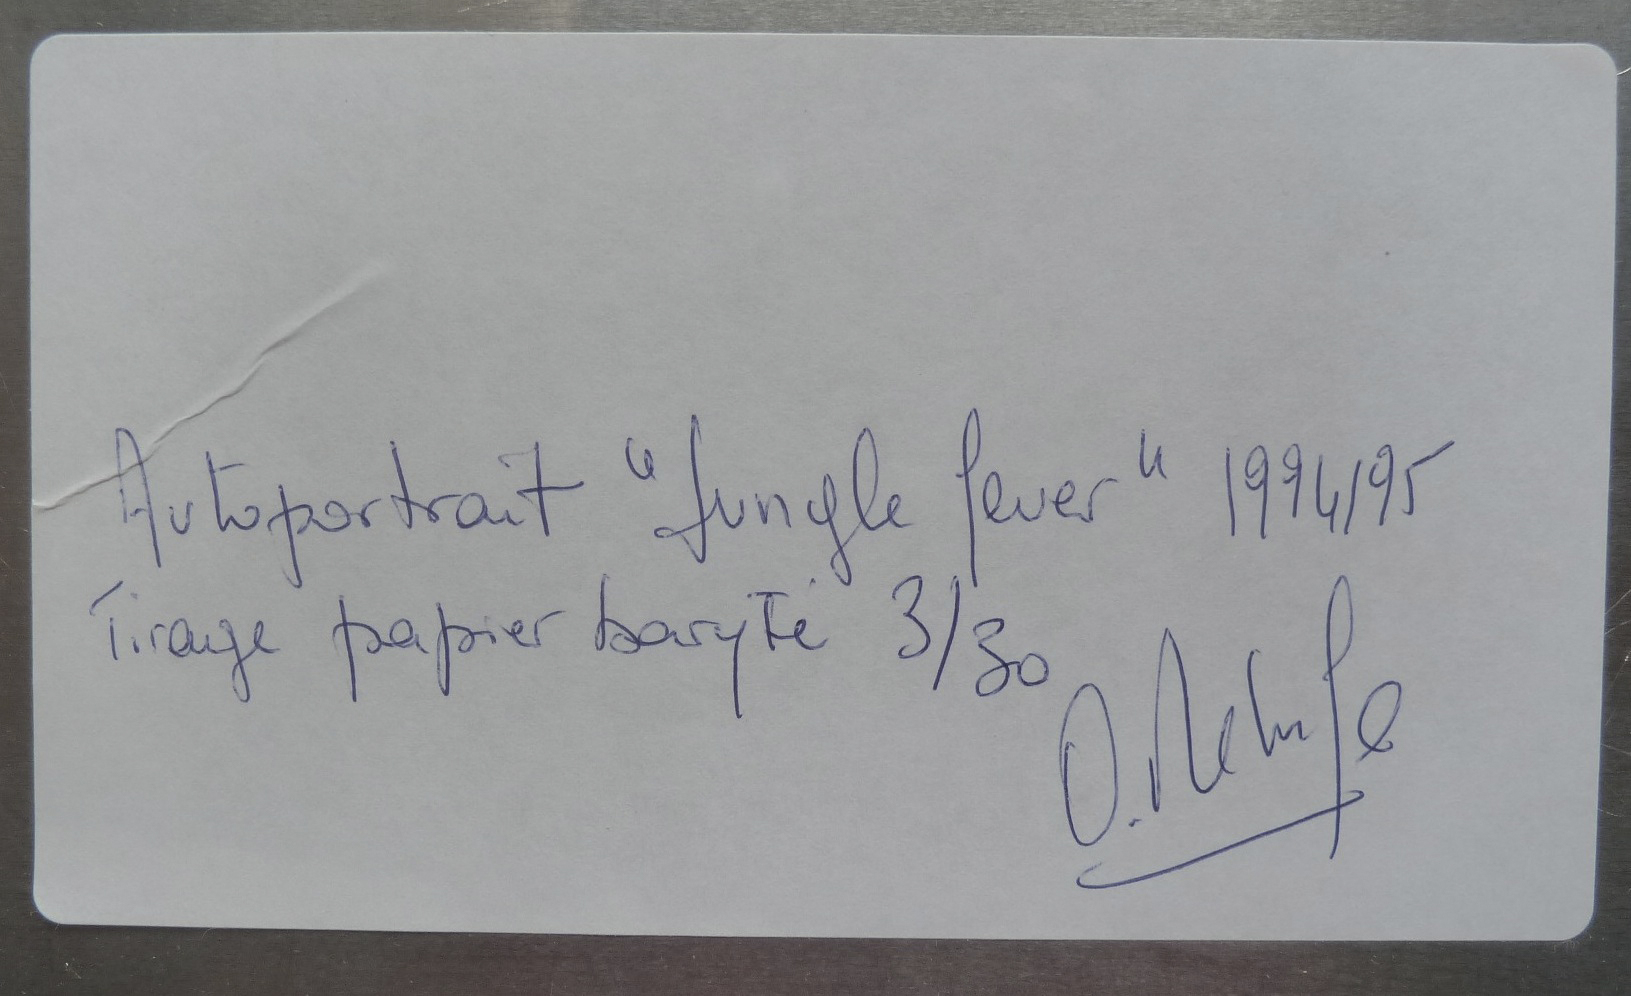 Autoportrait "Jungle fever" 1994/95
Tirage papier baryté 3/30
O.